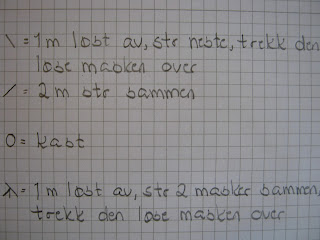 \ = 1 m løst av, str neste, trekk den
løse masken over
/ = 2 m str sammen
O = kast
λ = 1 m løst av, str 2 masker sammen,
trekk den løse masken over